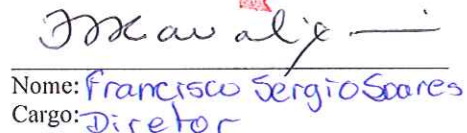 Nome: Francisco Sergio Soares
Cargo: Diretor